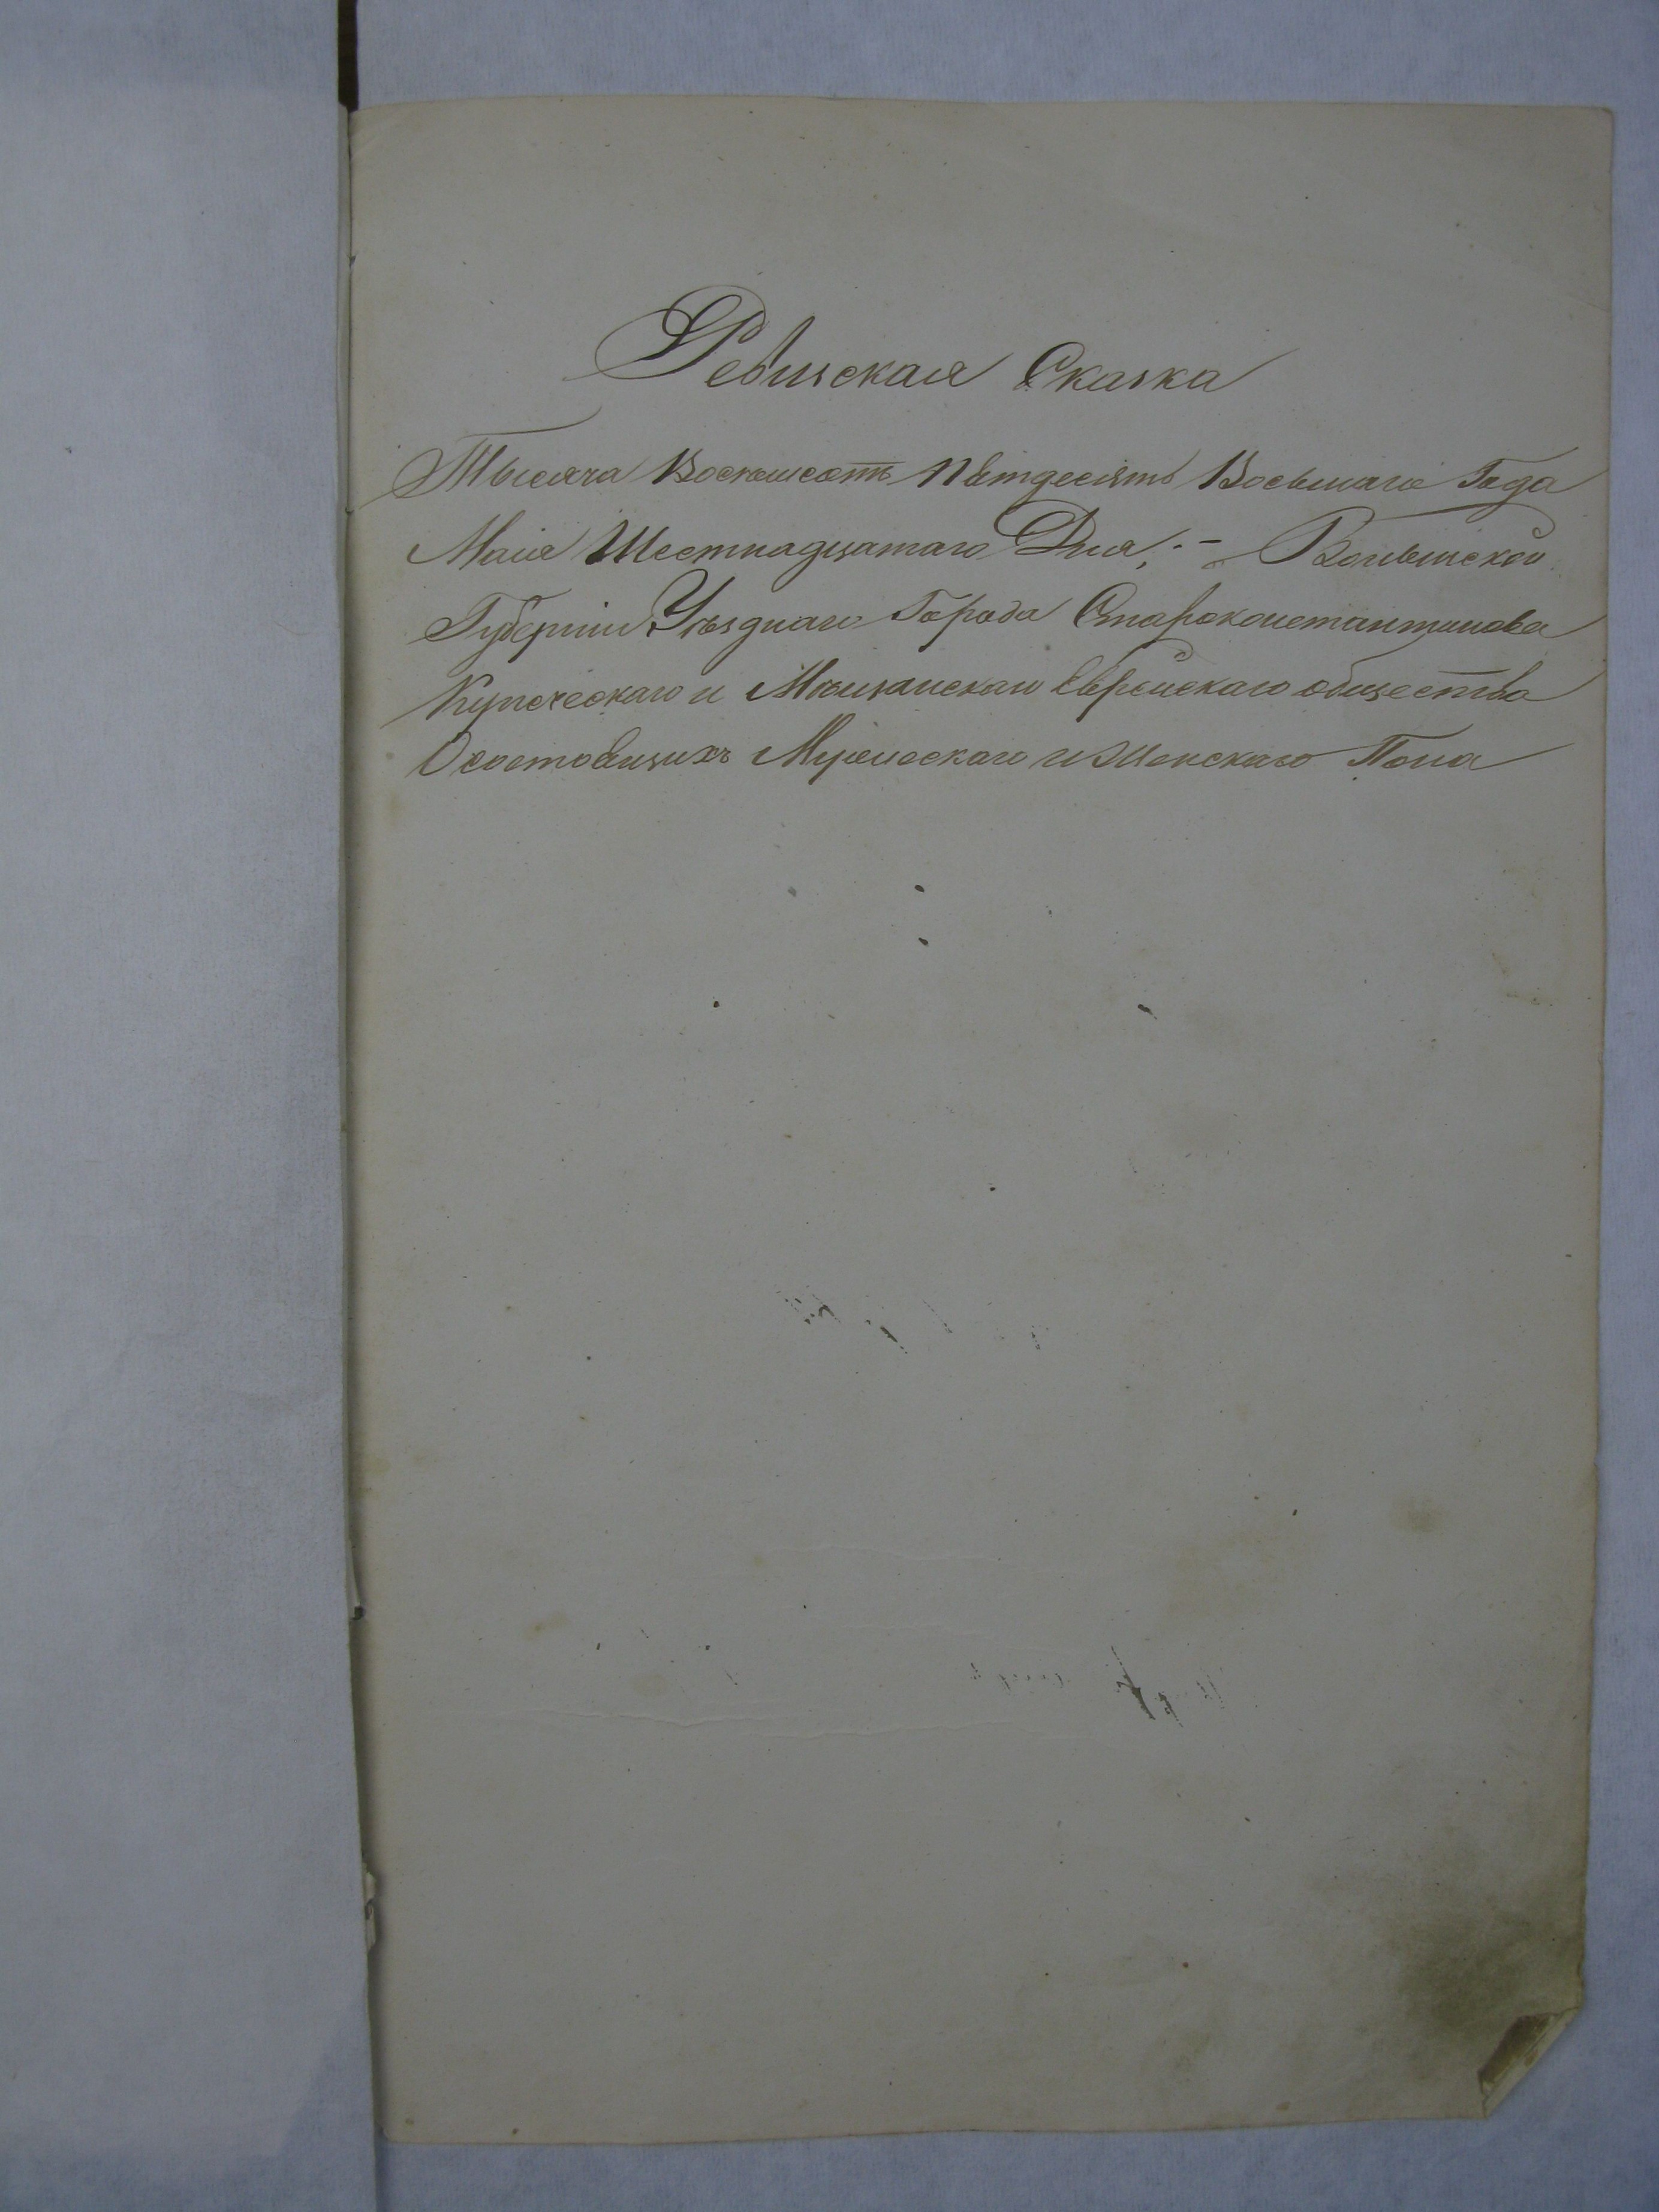 Ревизская Сказка
Тысяча Восемьсотъ Пятдесятъ Восьмаго Года
Маія Шестнадцатаго Дня. – Волынской
Губерніи Уѣзднаго Города Староконстантинова
Купеческаго и Мѣщанскаго Еврейскаго общества
О состоящихъ Мужескаго и Женскаго Пола